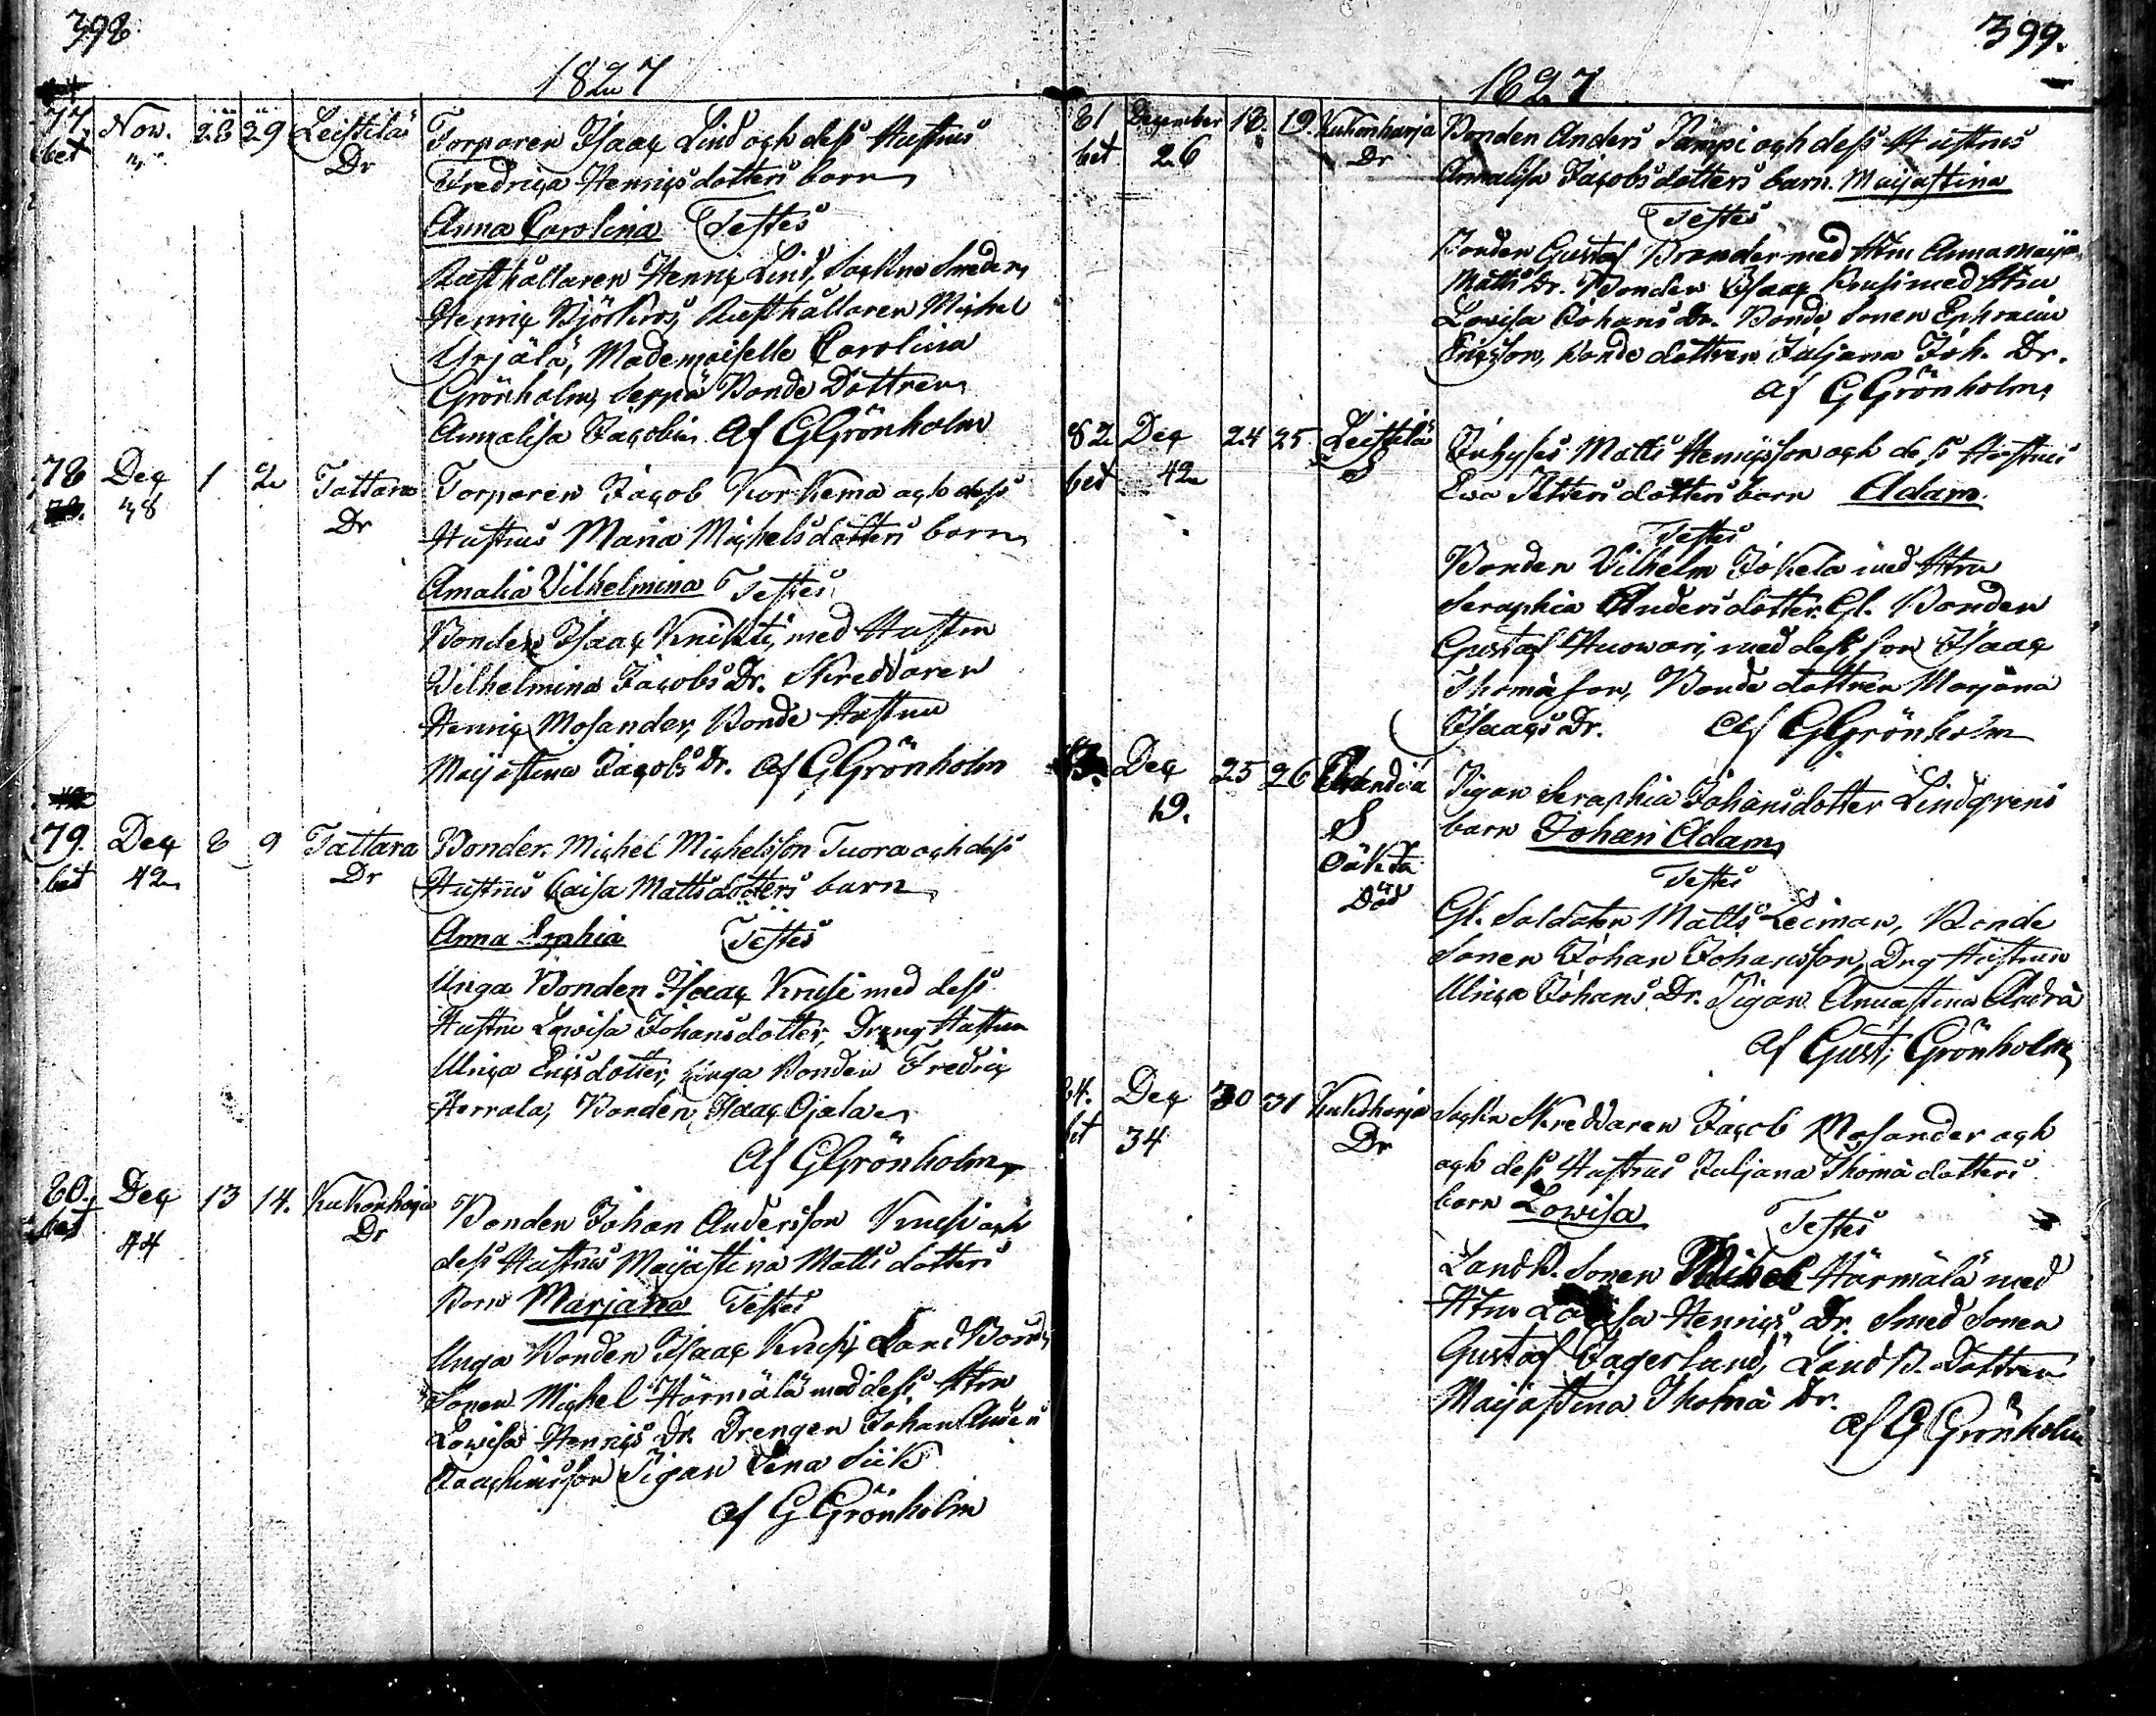 398
1827
77. Nov. 28 29 Leistilä Torparen Isaac Lind och dess Hustrus
bet Dr Fredrica Henricsdotters barn
Anna Carolina Testes
Rusthållaren Henric Lind, Sockne Smeden
Henric Björkros, Rusthållaren Michel
Yrjälä, Mademoiselle Carolina
Grönholm, Seppä Bonde Dottren
Annalisa Jacobi. af GGrönholm
78 Dec 1 2 Tattara Torparen Jacob Korkema och dess
38 Dr Hustrus Maria Michelsdotters barn
Amalia Vilhelmina Testes
Bonden Isaac Knihti, med Hustru
Vilhelmina Jacobs Dr. Skreddaren
Henric Mosander, Bonde Hustru
Maijastina Jacobs Dr. af GGrönholm
79. Dec 8 9 Tattara Bonden Michel Michelsson Tuora och dess
bet 42 Dr Hustrus Caisa Mattsdotters barn
Anna Sophia Testes
Unga Bonden Isaac Krusi med dess
Hustru Lowisa Johansdotter, Dreng Hustru
Ulrica Ericsdotter, Unga Bonden Fredric
Herrala, Bonden Isaac Ojala
Af GGrönholm
80. Dec 13 14. Kukonharja Bonden Johan Andersson Krusi och
bet 44 Dr dess Hustrus Maijastina Matts dotters
Barn Marjana Testes
Unga Bonden Isaac Krusi, Land Bonde
Sonen Michel Härmälä med dess Hru
Lowisa Henrics Dr. Drengen Johan Anders
Pigan Lena Siik
af G Grönholm
399.
1827
81 December 18. 19. Kukonharja Bonden Anders Pämpi och dess Hustrus
bet 26 Dr Annalisa Jacobs dotters barn. Maijastina
Testes
Bonden Gustaf Brander med Hru Annamaija
Matts Dr. Bonden Isaac Krusi med Hru
Lovisa Johans Dr. Bonde Sonen Ephraim
Ericsson, Bonde dottren Juljana Joh. Dr.
af GGrönholm
82 Dec 24 25. Leistilä Inhyses Matts Henricsson och dess Hustrus
bet 42 S Ewa Petters dotters barn Adam.
Testes
Bonden Vilhelm Jokela med Hru
Seraphia Anders dotter. Gl. Bonden
Gustaf Huowari, med dess son Isaac
Thomæ son, Bonde dottren Marjana
Isaacs Dr. Af GGrönholm
Dec 25 26 Pigan Seraphia Johansdotter Lindgrens
19. S barn Johan Adam
Oäkta Testes
Död Gl. Soldaten Matts Leiman, Bonde
Sonen Johan Johansson, Drg Hustrun
Ulrica Johans Dr. Pigan Annastina Andrä
af Gust: Grönholm
84. Dec 30 31 Kukoharja Sockn Skreddaren Jacob Mosander och
bet 34 Dr och dess Hustrus Juljana Thomæ dotters
barn Lowisa Testes
Landb. Sonen Mihel Härmälä med
Hru Lovisa Henrics Dr. Smed Sonen
Gustaf Fagerlund, Land B. Dottren
Maijastina Thomæ Dr.
af G Grönholm